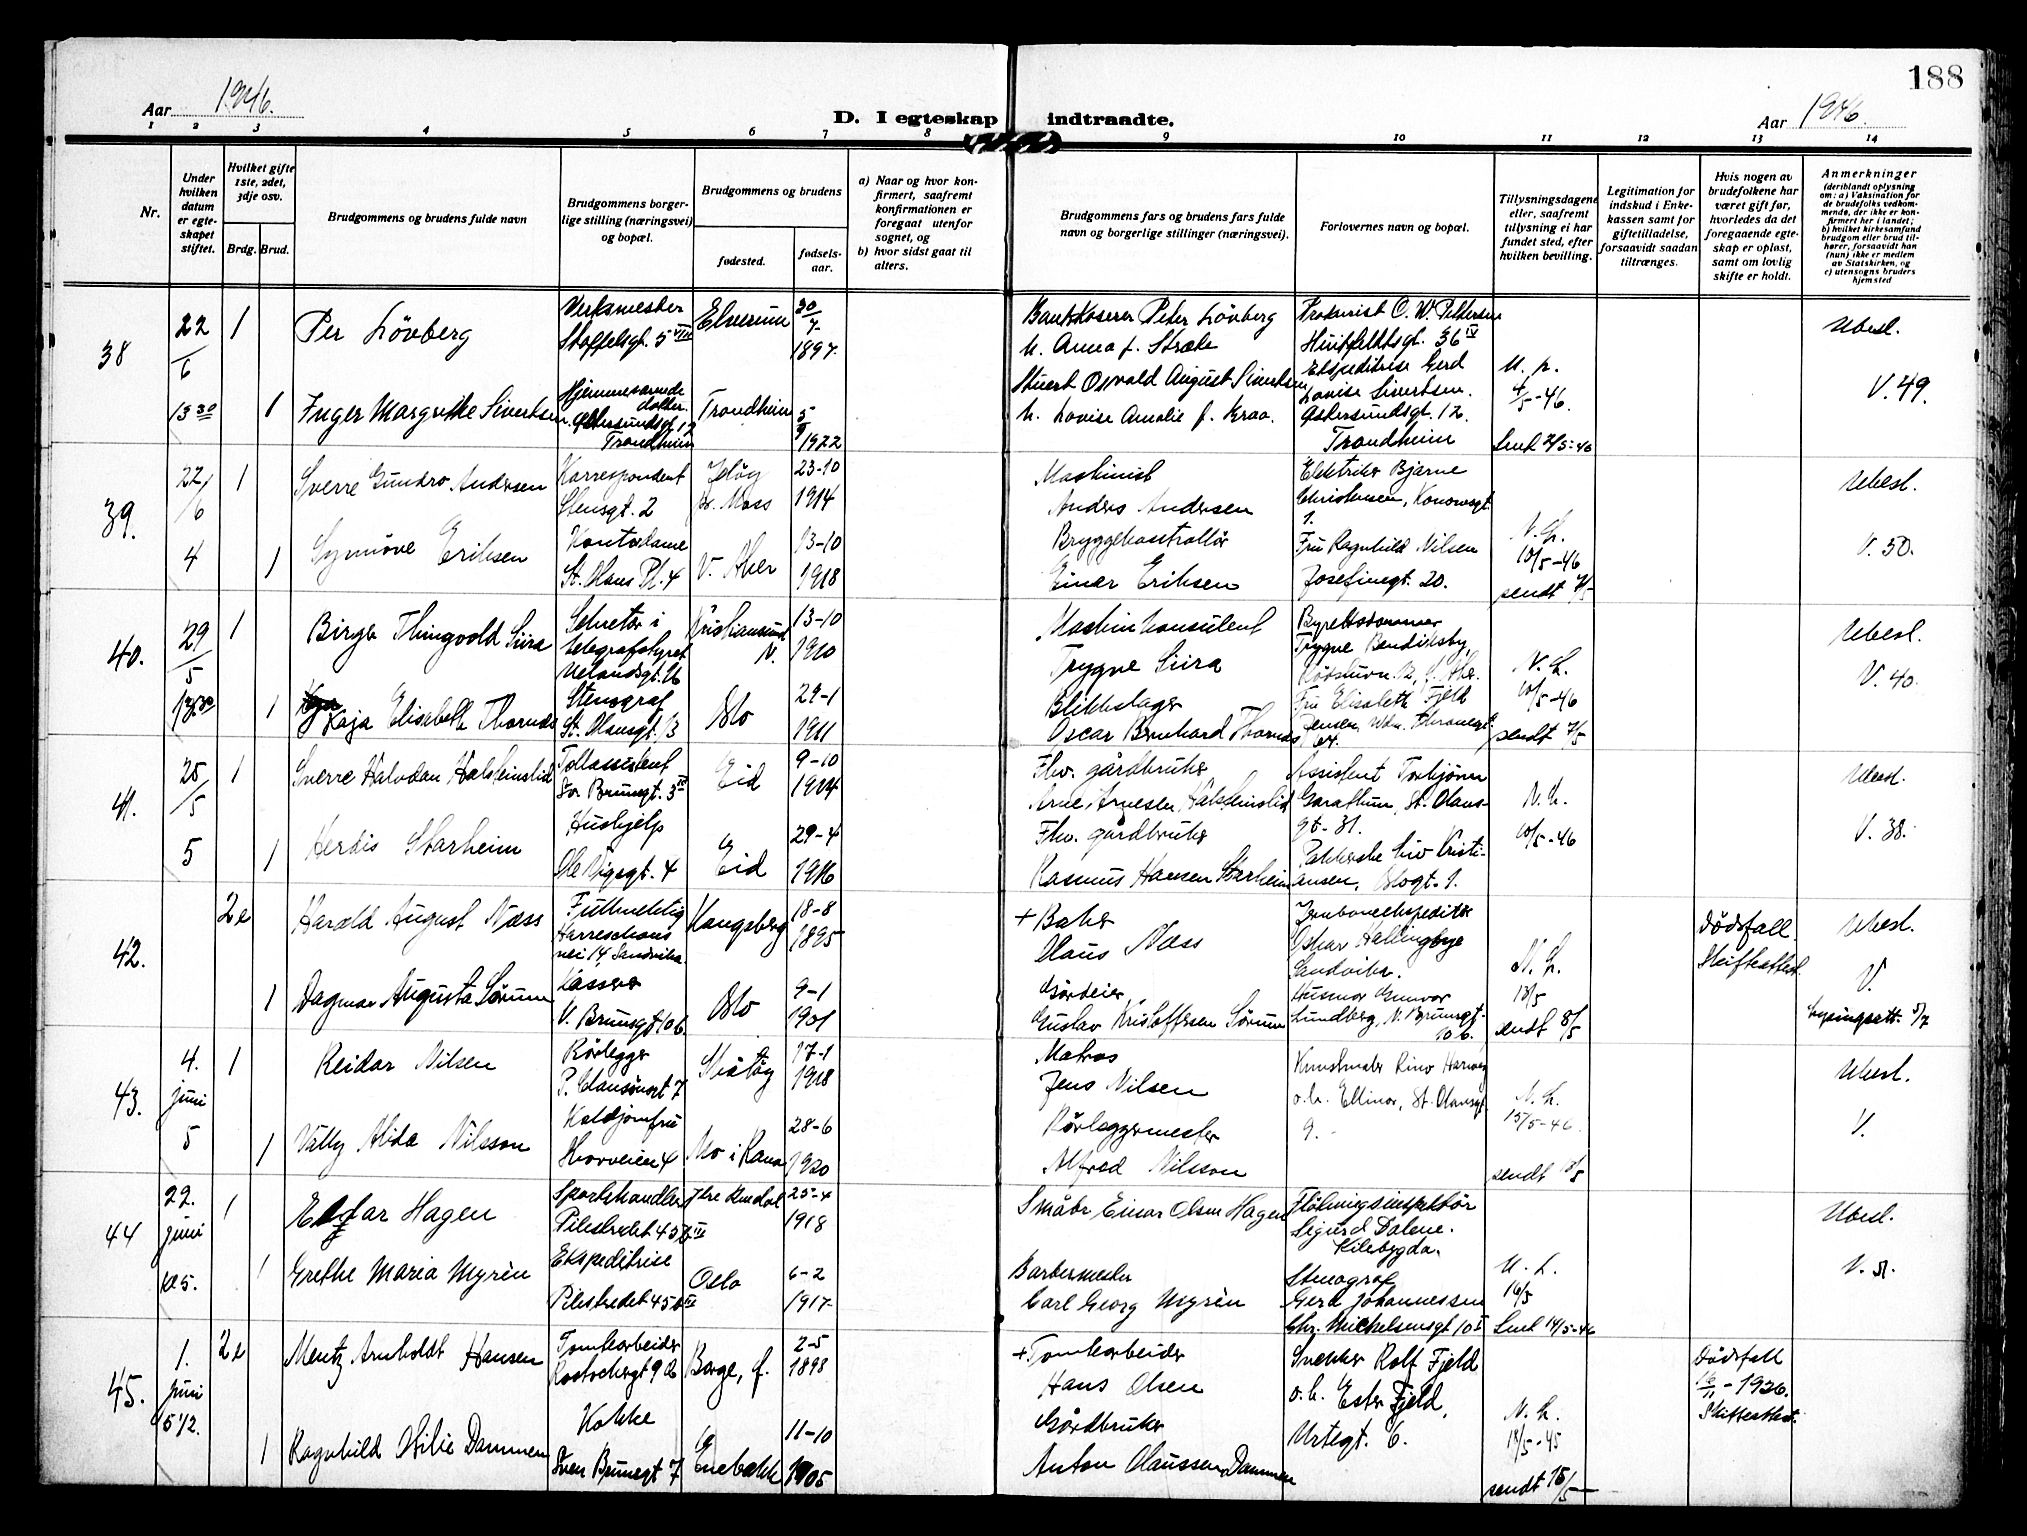 188
Aar 1946.
D. I egteskap indtraadte.
Aar 1946.
1 2 3 4 5 6 7 8 9 10 11 12 13 14
Nr.
Under hvilken datum er egteskapet stiftet.
Hvilket gifte 1ste, 2det, 3dje osv.
Brdg. Brud.
Brudgommens og brudens fulde navn
Brudgommens borgerlige stilling (næringsvei) og bopæl.
Brudgommens og brudens
fødested.
fødselsaar.
a) Naar og hvor konfirmert, saafremt konfirmationen er foregaat utenfor sognet, og
b) hvor sidst gaat til alters.
Brudgommens fars og brudens fars fulde navn og borgerlige stillinger (næringsvei).
Forlovernes navn og bopæl.
Tillysningsdagene eller, saafremt tillysning ei har fundet sted, efter hvilken bevilling.
Legitimation for indskud i Enkekassen samt for giftetilladelse, forsaavidt saadan tiltrænges.
Hvis nogen av brudefolkene har været gift før, hvorledes da det foregaaende egteskap er opløst, samt om lovlig skifte er holdt.
Anmerkninger (deriblandt oplysning om: a) Vaksination for de brudefolks vedkommende, der ikke er konfirmert her i landet; b) hvilket kirkesamfund brudgom eller brud tilhører, forsaavidt han (hun) ikke er medlem av Statskirken, og c) utensogns bruders hjemsted
38 22/6 13 30
1 Per Lövberg Verksmester Stoffelsgt. 5 VIII Elverum 30/7 1897 Bankkaserer Peter Lövberg Prokurist C. W. Pettersen Huitfeldtsgt. 36 IV Ubesl.
1 Inger Margrethe Sivertsen Hjemmeværende datter Trondheim 1922 Stuert Osvald August Sivertsen Ekspeditrise Gerd Lovise Sivertsen. Östersundsgt. 12 Trondheim 4/5-46. Sent 2/5-46 V. 49.
39. 22/6 4
1 Sverre Gundro Andersen Korrespondent Stensgt. 2 Jeløy pr. Moss 23-10 1914 Maskinist Anders Andersen Elektriker Bjarne Christensen, Konowsgt 1. Ubesl.
1 Synnöve Eriksen Kontordame St. Olavs Pl. 4 V. Aker 13-10 1918 Bryggekontrollör Einar Eriksen Fru Ragnhild Nilsen Josefinegt. 20. N. L. 10/5-46 sendt 7/5 V. 50.
40. 29/5 17.30
1 Birger Thingvold Siira Sekretær i telegrafstyret Uelandsgt. Kristiansund N. 13-10 1910 Maskinkonsulent Trygve Siira Byrettsdommer Trygve Bendiksby, Ubesl.
1 Kaja Elisabeth Thornæs Stenograf St. Olavsgt. 13 Oslo 29-1 1911 Blikkslager Oscar Bernhard Thornæs Fru Elisabeth Fjeld N. L. 10/5-46 sendt 7/5 V. 40.
41. 25/5 5
1 Sverre Halvdan Halsteinslid Tollassistent Eid 9-10 1914 Fhv. gårdbruker Arne Arnesen Halsteinslid Assistent Torbjörn Garathun, St. Olavsgt. 31. Ubesl.
1 Herdis Starheim Hushjelp Ole Vigsgt. 4 Eid 29-4 1916 Fhv. gårdbruker Rasmus Hansen Starheim Pakkerske Liv Kristiansen, Oslogt. 1. N. L. 10/5-46 V. 38.
42.
2e Harald August Næss Fullmektig Sandvika Kongsberg 18-8 1895 + Baker Olaus Næss Jernbaneekspeditör Oskar Hallingbye Sandvika. Dødsfall. Skifteattest. Ubesl.
1 Dagmar Augusta Sørum Kasserer V. Brunsgt 10 b Oslo 9-1 1901 Gårdeier Gustav Kristoffersen Sørum Husmor Gunvor Lundberg, V. Brunsgt. 10 b. N. L. 13/5 sendt 8/5 V. Lysingsatt. 5/7
43. 4. juni 5
1 Reidar Nilsen Rørlegger 17-1 1918 Matros Jens Nilsen Kunstmaler Rino Harvey o.h. Ellinor, St. Olavsgt 9. Ubesl.
1 Vally Alida Nilsson Koldjomfru Mo i Rana 28-6 1920 Rørleggermester Alfred Nilsson N. L. 15/5-46 V.
44 22. juni
1 Hagen Sportshandler Pilestredet 45 Øvre Rendal 25-4 1918 Småbr Einar Olsen Hagen Flötningsinspektör Sigurd Dalene. Kilebygda. Ubesl.
1 Grethe Maria Myrèn Ekspeditrise Pilestredet 45 Oslo 6-2 1917 Barbermester Carl Georg Myrèn Stenograf Gerd Johannessen Chr. Michelsensgt 10 I 16/5 Sent 14/5-46
45. 1. juni 5 1/2.
2e Mentz Arnholdt Hansen Tomtearbeider Rostockergt 9 Borge, f. 2-5 1898 + Tomtearbeider Hans Olsen Snekker Rolf Fjeld o.h. Ester Fjeld, Urtegt. 6. Dödsfall 1926. Skifteattest.
1 Ragnhild Otilie Dammen Kokke Sven Brunsgt 7 Enebakk 11-10 1905 Gårdbruker Anton Olaussen Dammen N. L. 18/5-45 sendt 15/5